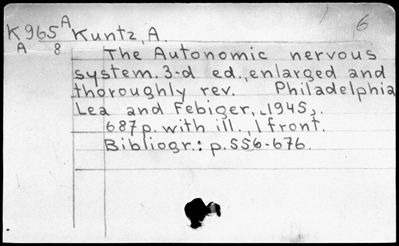 6
K965 A Kuntz, A.
A 8 The Autonomic nervous
system. 3-d ed., enlarged and
thoroughly rev. Philadelphia
Lea and Febiger, 1945.
687p. with ill., 1 front.
Bibliogr.: p. 556-676.